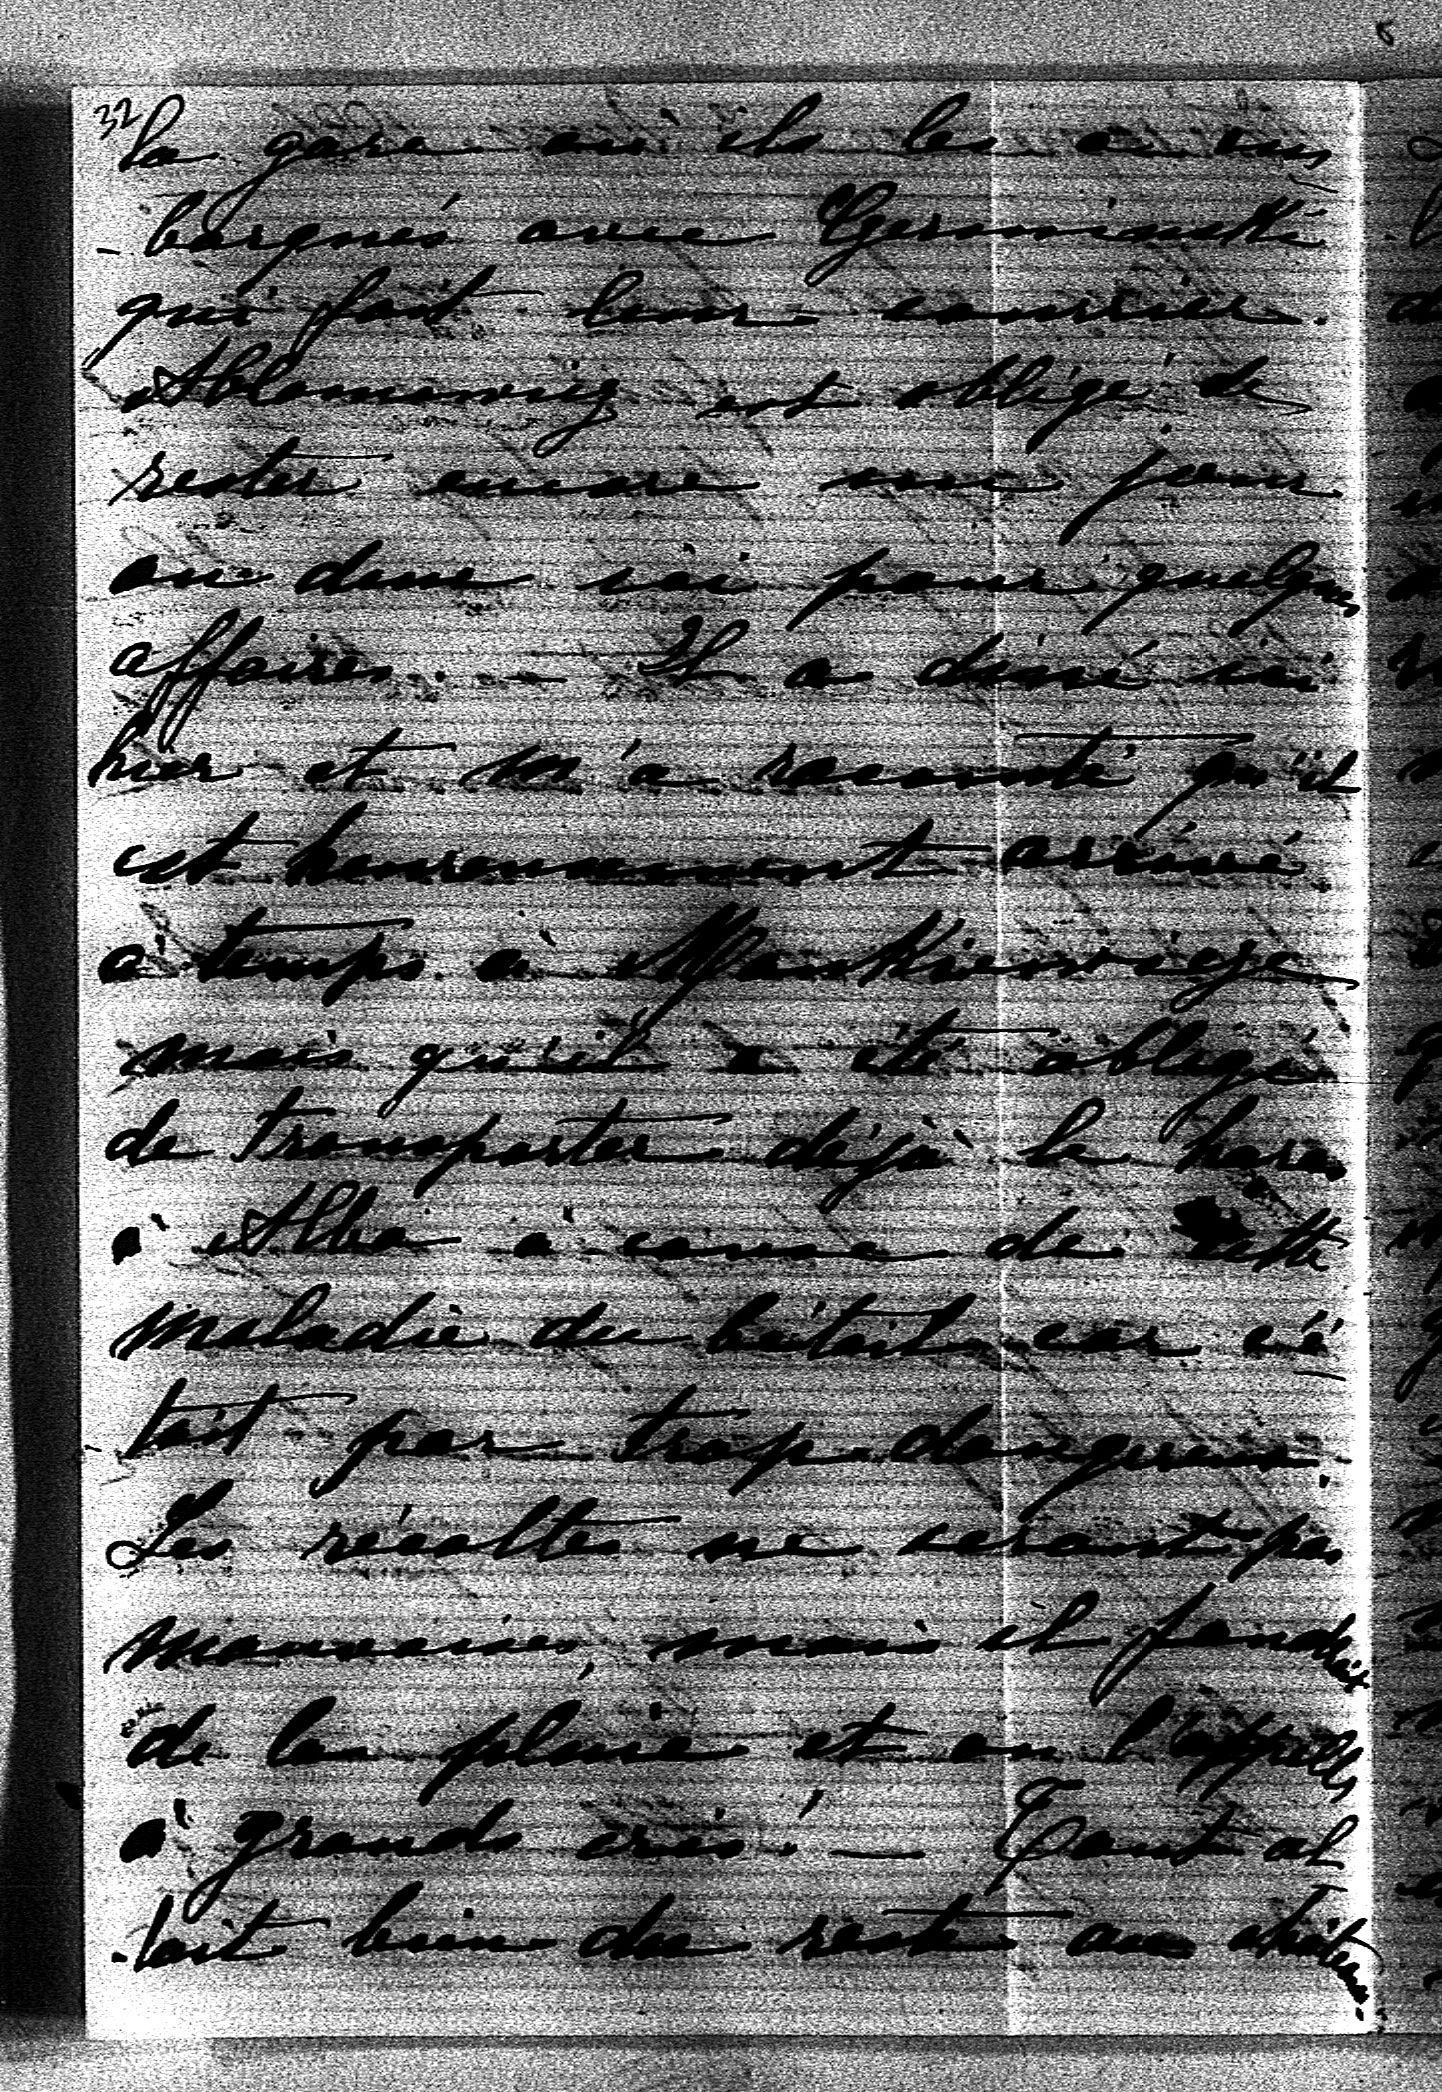 32
la gare où ils les a em
-barqués avec Germinetti
qui fait leur courrier.
Ablamowicz est obligé de
rester encore une jour
ou deux ici pour quelques
affaires. — Il a diné ici
hier et m'a raconté qu'il
est heureusement arrivé
à temps à Mankiewicze
mais qu'il a été obligé
de transporter déjà le haras
à Alba à cause de cette
maladie du bétail car c'é
-tait par trop dangereux.
Les récoltes ne seront pas
mauvaises, mais il faudrait
de la pluie et on l'appelle
à grands cris! — Tout al
-lait bien du reste au château.